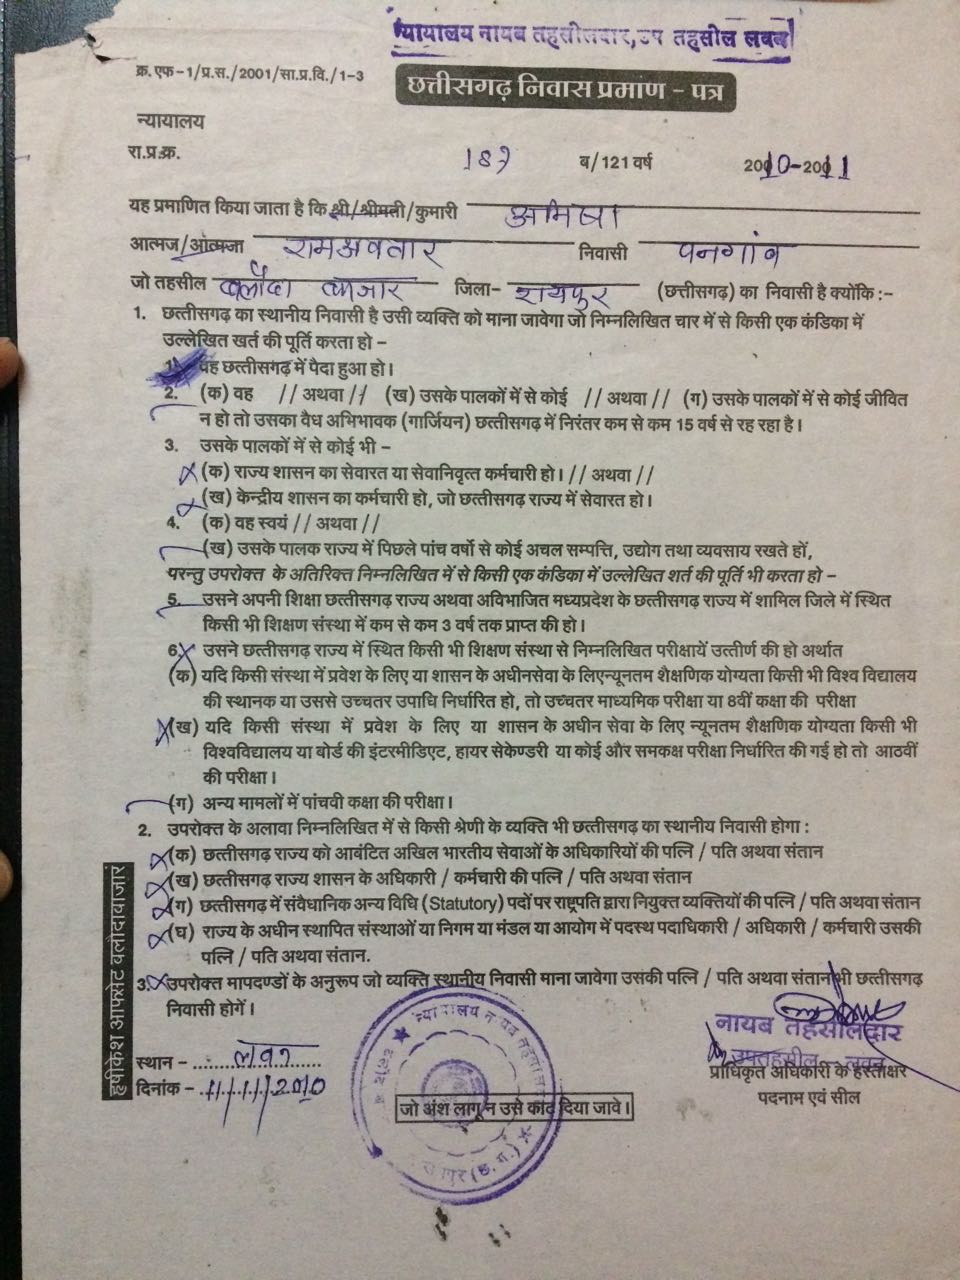 न्यायालय नायब तहसीलदार, उप तहसील लवन
क्र. एफ-1/प्र.स./2001/सा.प्र.वि./1-3
छत्तीसगढ़ निवास प्रमाण - पत्र
न्यायालय
रा.प्र.क्र. 187 ब/121 वर्ष 2010-2011
यह प्रमाणित किया जाता है कि श्री/श्रीमती/कुमारी अमिषा
आत्मज/आत्मजा रामअवतार निवासी पनगांव
जो तहसील बलौदा बाजार जिला- रायपुर (छत्तीसगढ़) का निवासी है क्योंकि :-
1. छत्तीसगढ़ का स्थानीय निवासी है उसी व्यक्ति को माना जावेगा जो निम्नलिखित चार में से किसी एक कंडिका में
उल्लेखित खर्त की पूर्ति करता हो -
1. वह छत्तीसगढ़ में पैदा हुआ हो।
2. (क) वह // अथवा // (ख) उसके पालकों में से कोई // अथवा // (ग) उसके पालकों में से कोई जीवित
न हो तो उसका वैध अभिभावक (गार्जियन) छत्तीसगढ़ में निरंतर कम से कम 15 वर्ष से रह रहा है।
3. उसके पालकों में से कोई भी -
(क) राज्य शासन का सेवारत या सेवानिवृत्त कर्मचारी हो। // अथवा //
(ख) केन्द्रीय शासन का कर्मचारी हो, जो छत्तीसगढ़ राज्य में सेवारत हो।
4. (क) वह स्वयं // अथवा //
(ख) उसके पालक राज्य में पिछले पांच वर्षो से कोई अचल सम्पत्ति, उद्योग तथा व्यवसाय रखते हों,
परन्तु उपरोक्त के अतिरिक्त निम्नलिखित में से किसी एक कंडिका में उल्लेखित शर्त की पूर्ति भी करता हो -
5. उसने अपनी शिक्षा छत्तीसगढ़ राज्य अथवा अविभाजित मध्यप्रदेश के छत्तीसगढ़ राज्य में शामिल जिले में स्थित
किसी भी शिक्षण संस्था में कम से कम 3 वर्ष तक प्राप्त की हो।
6. उसने छत्तीसगढ़ राज्य में स्थित किसी भी शिक्षण संस्था से निम्नलिखित परीक्षायें उत्तीर्ण की हो अर्थात
(क) यदि किसी संस्था में प्रवेश के लिए या शासन के अधीनसेवा के लिएन्यूनतम शैक्षणिक योग्यता किसी भी विश्व विद्यालय
की स्थानक या उससे उच्चतर उपाधि निर्धारित हो, तो उच्चतर माध्यमिक परीक्षा या 8वीं कक्षा की परीक्षा
(ख) यदि किसी संस्था में प्रवेश के लिए या शासन के अधीन सेवा के लिए न्यूनतम शैक्षणिक योग्यता किसी भी
विश्वविद्यालय या बोर्ड की इंटरमीडिएट, हायर सेकेण्डरी या कोई और समकक्ष परीक्षा निर्धारित की गई हो तो आठवीं
की परीक्षा।
(ग) अन्य मामलों में पांचवी कक्षा की परीक्षा।
2. उपरोक्त के अलावा निम्नलिखित में से किसी श्रेणी के व्यक्ति भी छत्तीसगढ़ का स्थानीय निवासी होगा :
(क) छत्तीसगढ़ राज्य को आवंटित अखिल भारतीय सेवाओं के अधिकारियों की पत्नि / पति अथवा संतान
(ख) छत्तीसगढ़ राज्य शासन के अधिकारी / कर्मचारी की पत्नि / पति अथवा संतान
(ग) छत्तीसगढ़ में संवैधानिक अन्य विधि (Statutory) पदों पर राष्ट्रपति द्वारा नियुक्त व्यक्तियों की पत्नि / पति अथवा संतान
(घ) राज्य के अधीन स्थापित संस्थाओं या निगम या मंडल या आयोग में पदस्थ पदाधिकारी / अधिकारी / कर्मचारी उसकी
पत्नि / पति अथवा संतान.
3. उपरोक्त मापदण्डों के अनुरूप जो व्यक्ति स्थानीय निवासी माना जावेगा उसकी पत्नि / पति अथवा संतान भी छत्तीसगढ़
निवासी होगें।
हृषीकेश आफ्सेट बलौदाबाजार
नायब तहसीलदार
उपतहसील - लवन
स्थान - लवन
प्राधिकृत अधिकारी के हस्ताक्षर
दिनांक - 11/11/2010
पदनाम एवं सील
जो अंश लागू न उसे काट दिया जावे।